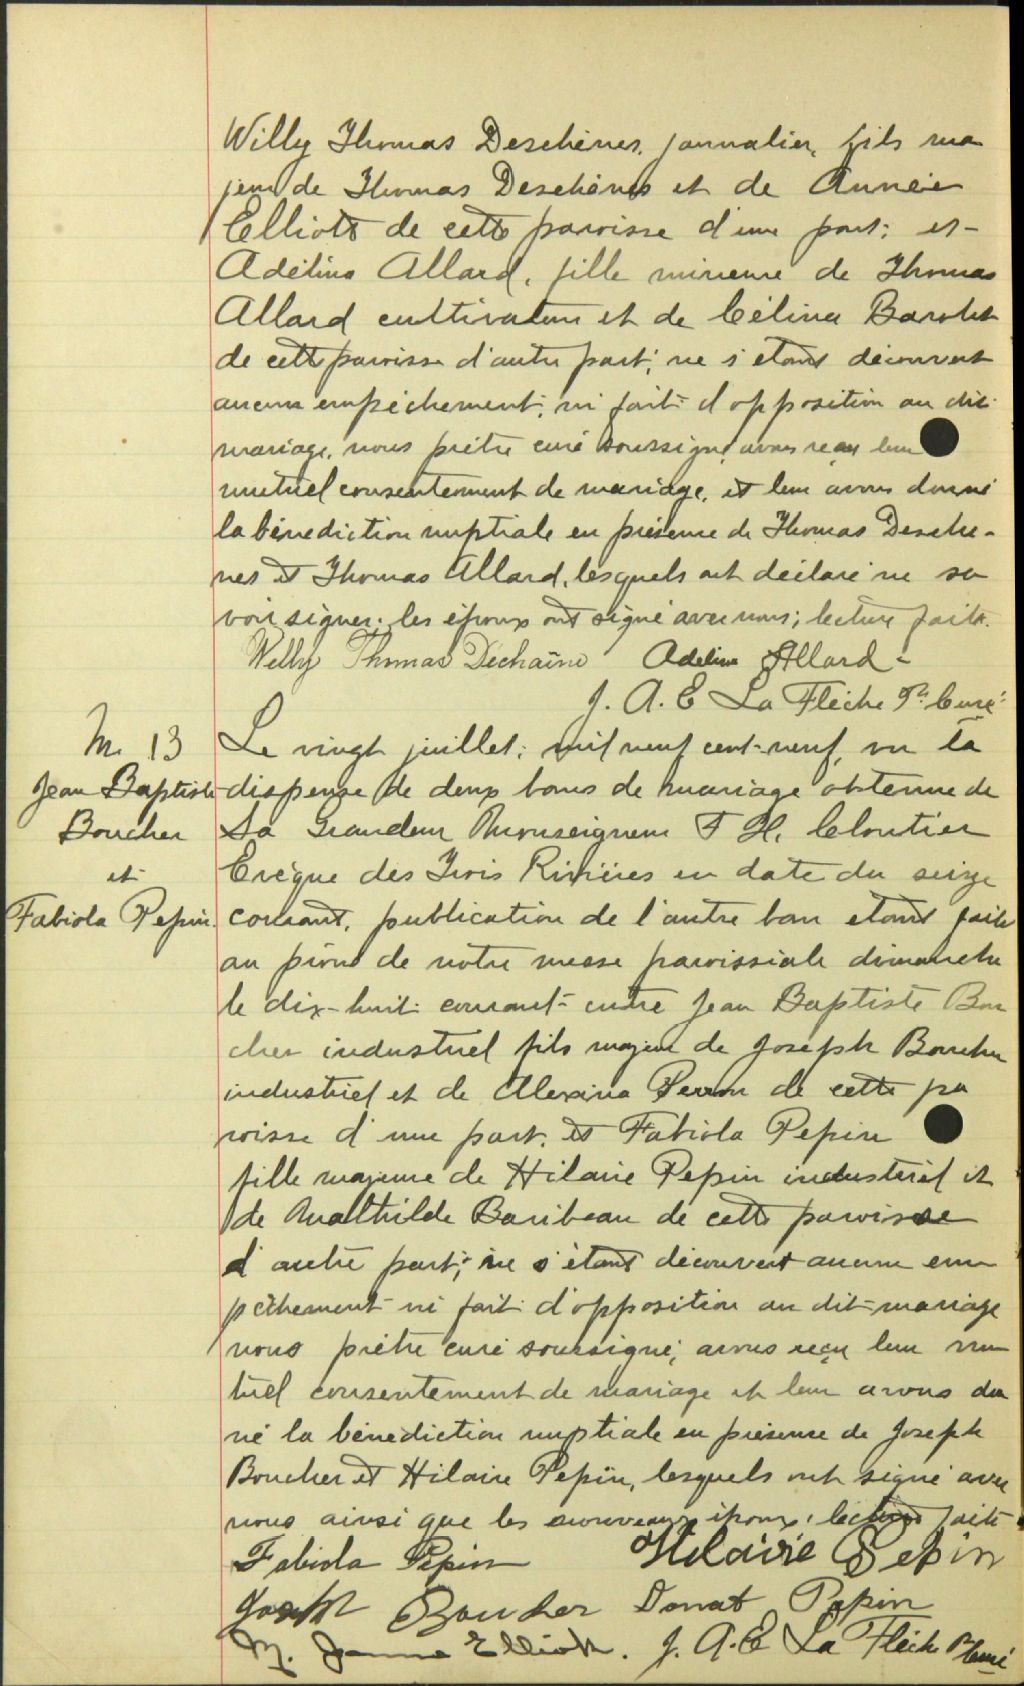 Willy Thomas Deschênes, journalier, fils ma
jeur de Thomas Deschênes et de Annie
Elliott de cette paroisse d'une part; et
Adélina Allard, fille mineure de Thomas
Allard cultivateur et de Célina Barolet
de cette paroisse d'autre part; ne s'étant découvert
aucun empêchement, ni fait d'opposition au dit
mariage, nous prêtre curé soussigné avons reçu leur
mutuel consentement de mariage, et leur avons donné
la bénédiction nuptiale en présence de Thomas Desche-
nes et Thomas Allard, lesquels ont déclaré ne sa
voir signer; les époux ont signé avec nous; lecture faite.
Willy Thomas Dechaine Adelina Allard -
J. A. E La Flèche Ptr Curé
M. 13
Jean Baptiste
Boucher
et
Fabiola Pepin.
Le vingt juillet; mil neuf cent-neuf, vu la
dispense de deux bans de mariage obtenue de
Sa Grandeur Monseigneur F X. Cloutier
Evêque des Trois Rivières en date du seize
courant, publication de l'autre ban étant faite
au prône de notre messe paroissiale dimanche
le dix-huit courant entre Jean Baptiste Bou
cher industriel fils majeur de Joseph Boucher
industriel et de Alexina Perron de cette pa
roisse d'une part, et Fabiola Pepin
fille majeure de Hilaire Pepin industriel et
de Mathilde Baribeau de cette paroisse
d'autre part; ne s'étant découvert aucun em
pêchement ni fait d'opposition au dit mariage
nous prêtre curé soussigné, avons reçu leur mu
tuel consentement de mariage et leur avons don
né la bénédiction nuptiale en présence de Joseph
Boucher et Hilaire Pepin, lesquels ont signé avec
nous ainsi que les nouveaux époux, lecture faite
Fabiola Pepin Hilaire Pepin
Joseph Boucher Donat Pepin
M. Jeanne Elliott. J. A. E La Flèche Ptr Curé